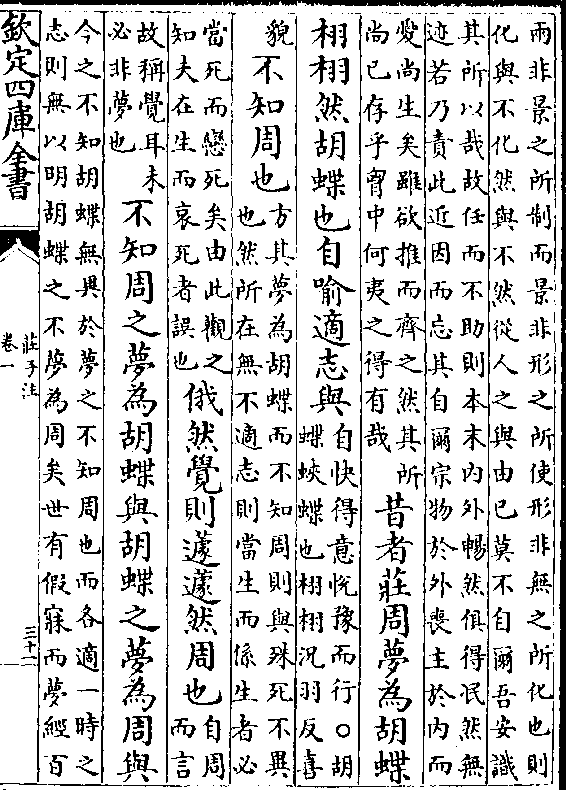 兩非景之所制而景非形之所使形非無之所化也則
化與不化然與不然從人之與由已莫不自爾吾安識
其所以哉故任而不助則本末内外暢然俱得泯然無
迹若乃責此近因而忘其自爾宗物於外喪主於内而
愛尚生矣雖欲推而齊之然其所
尚已存乎胷中何夷之得有哉
昔者莊周夢為胡蝶
栩栩然胡蝶也自喻適志與
自快得意悦豫而行○胡
蝶蛺蝶也栩栩況羽反喜
貌
不知周也
方其夢為胡蝶而不知周則與殊死不異
也然所在無不適志則當生而係生者必
當死而戀死矣由此觀之
知夫在生而哀死者誤也
俄然覺則蘧蘧然周也
自周
而言
故稱覺耳未
必非夢也
不知周之夢為胡蝶與胡蝶之夢為周與
今之不知胡蝶無異於夢之不知周也而各適一時之
志則無以明胡蝶之不夢為周矣世有假寐而夢經百
欽定四庫全書
莊子注
卷一
三十二